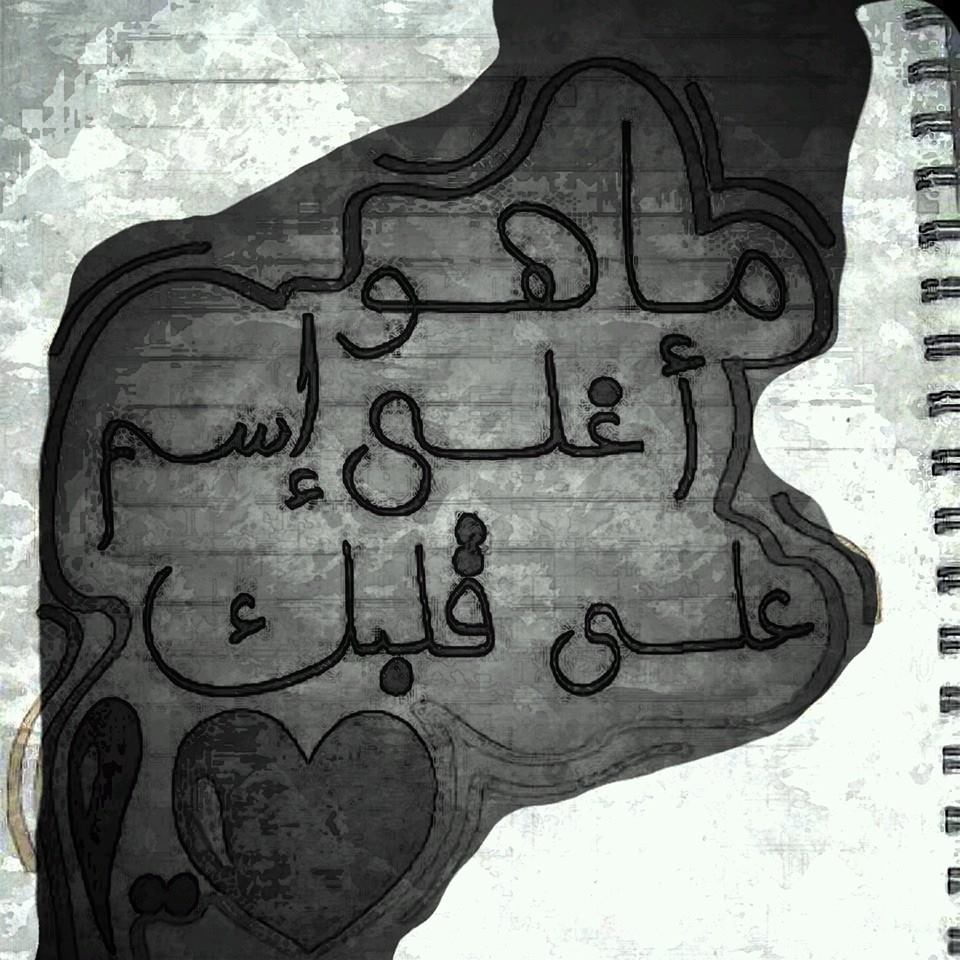 ما هو
أغلى إسم
على قلبك